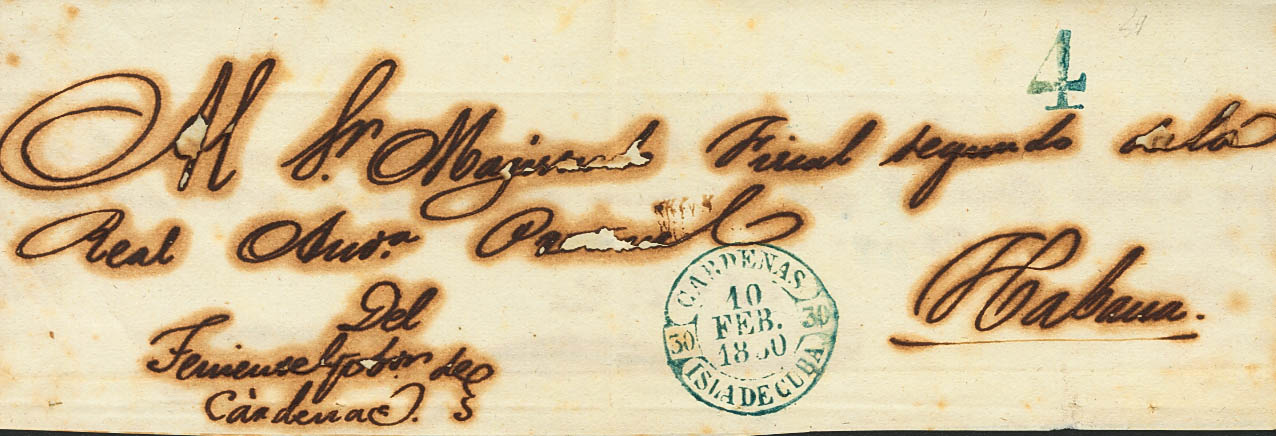 4
Al Sr. Magistrado Fiscal segundo de la
Real Aud.ª Pretorial
Habana.
Del
Teniente Gobor. de
Cárdenas.
CARDENAS
10
FEB.
18 0
30 30
ISLA DE CUBA